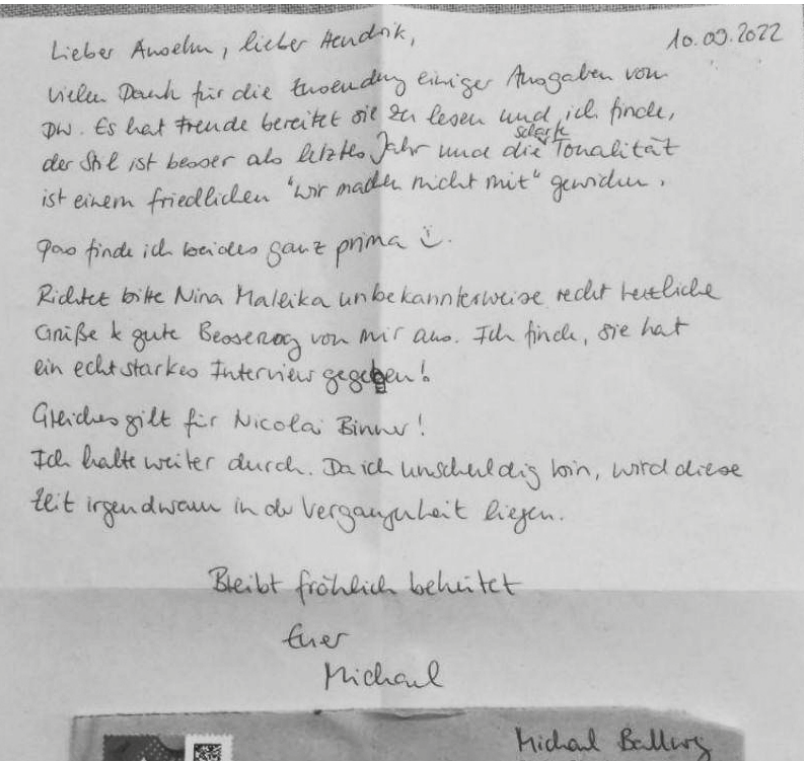 10.09.2022
Lieber Anselm, lieber Hendrik,
vielen Dank für die Zusendung einiger Ausgaben vom
DW. Es hat Freude bereitet sie zu lesen und ich finde,
der Stil ist besser als letztes Jahr und die scharfe Tonalität
ist einem friedlichen "wir machen nicht mit" gewichen.
Das finde ich beides ganz prima
Richtet bitte Nina Maleika unbekannterweise recht herzliche
Grüße & gute Besserung von mir aus. Ich finde, sie hat
ein echt starkes Interview gegeben!
Gleiches gilt für Nicolai Binner!
Ich halte weiter durch. Da ich unschuldig bin, wird diese
Zeit irgendwann in der Vergangenheit liegen.
Bleibt fröhlich behütet
Euer
Michael
Michael Ballweg